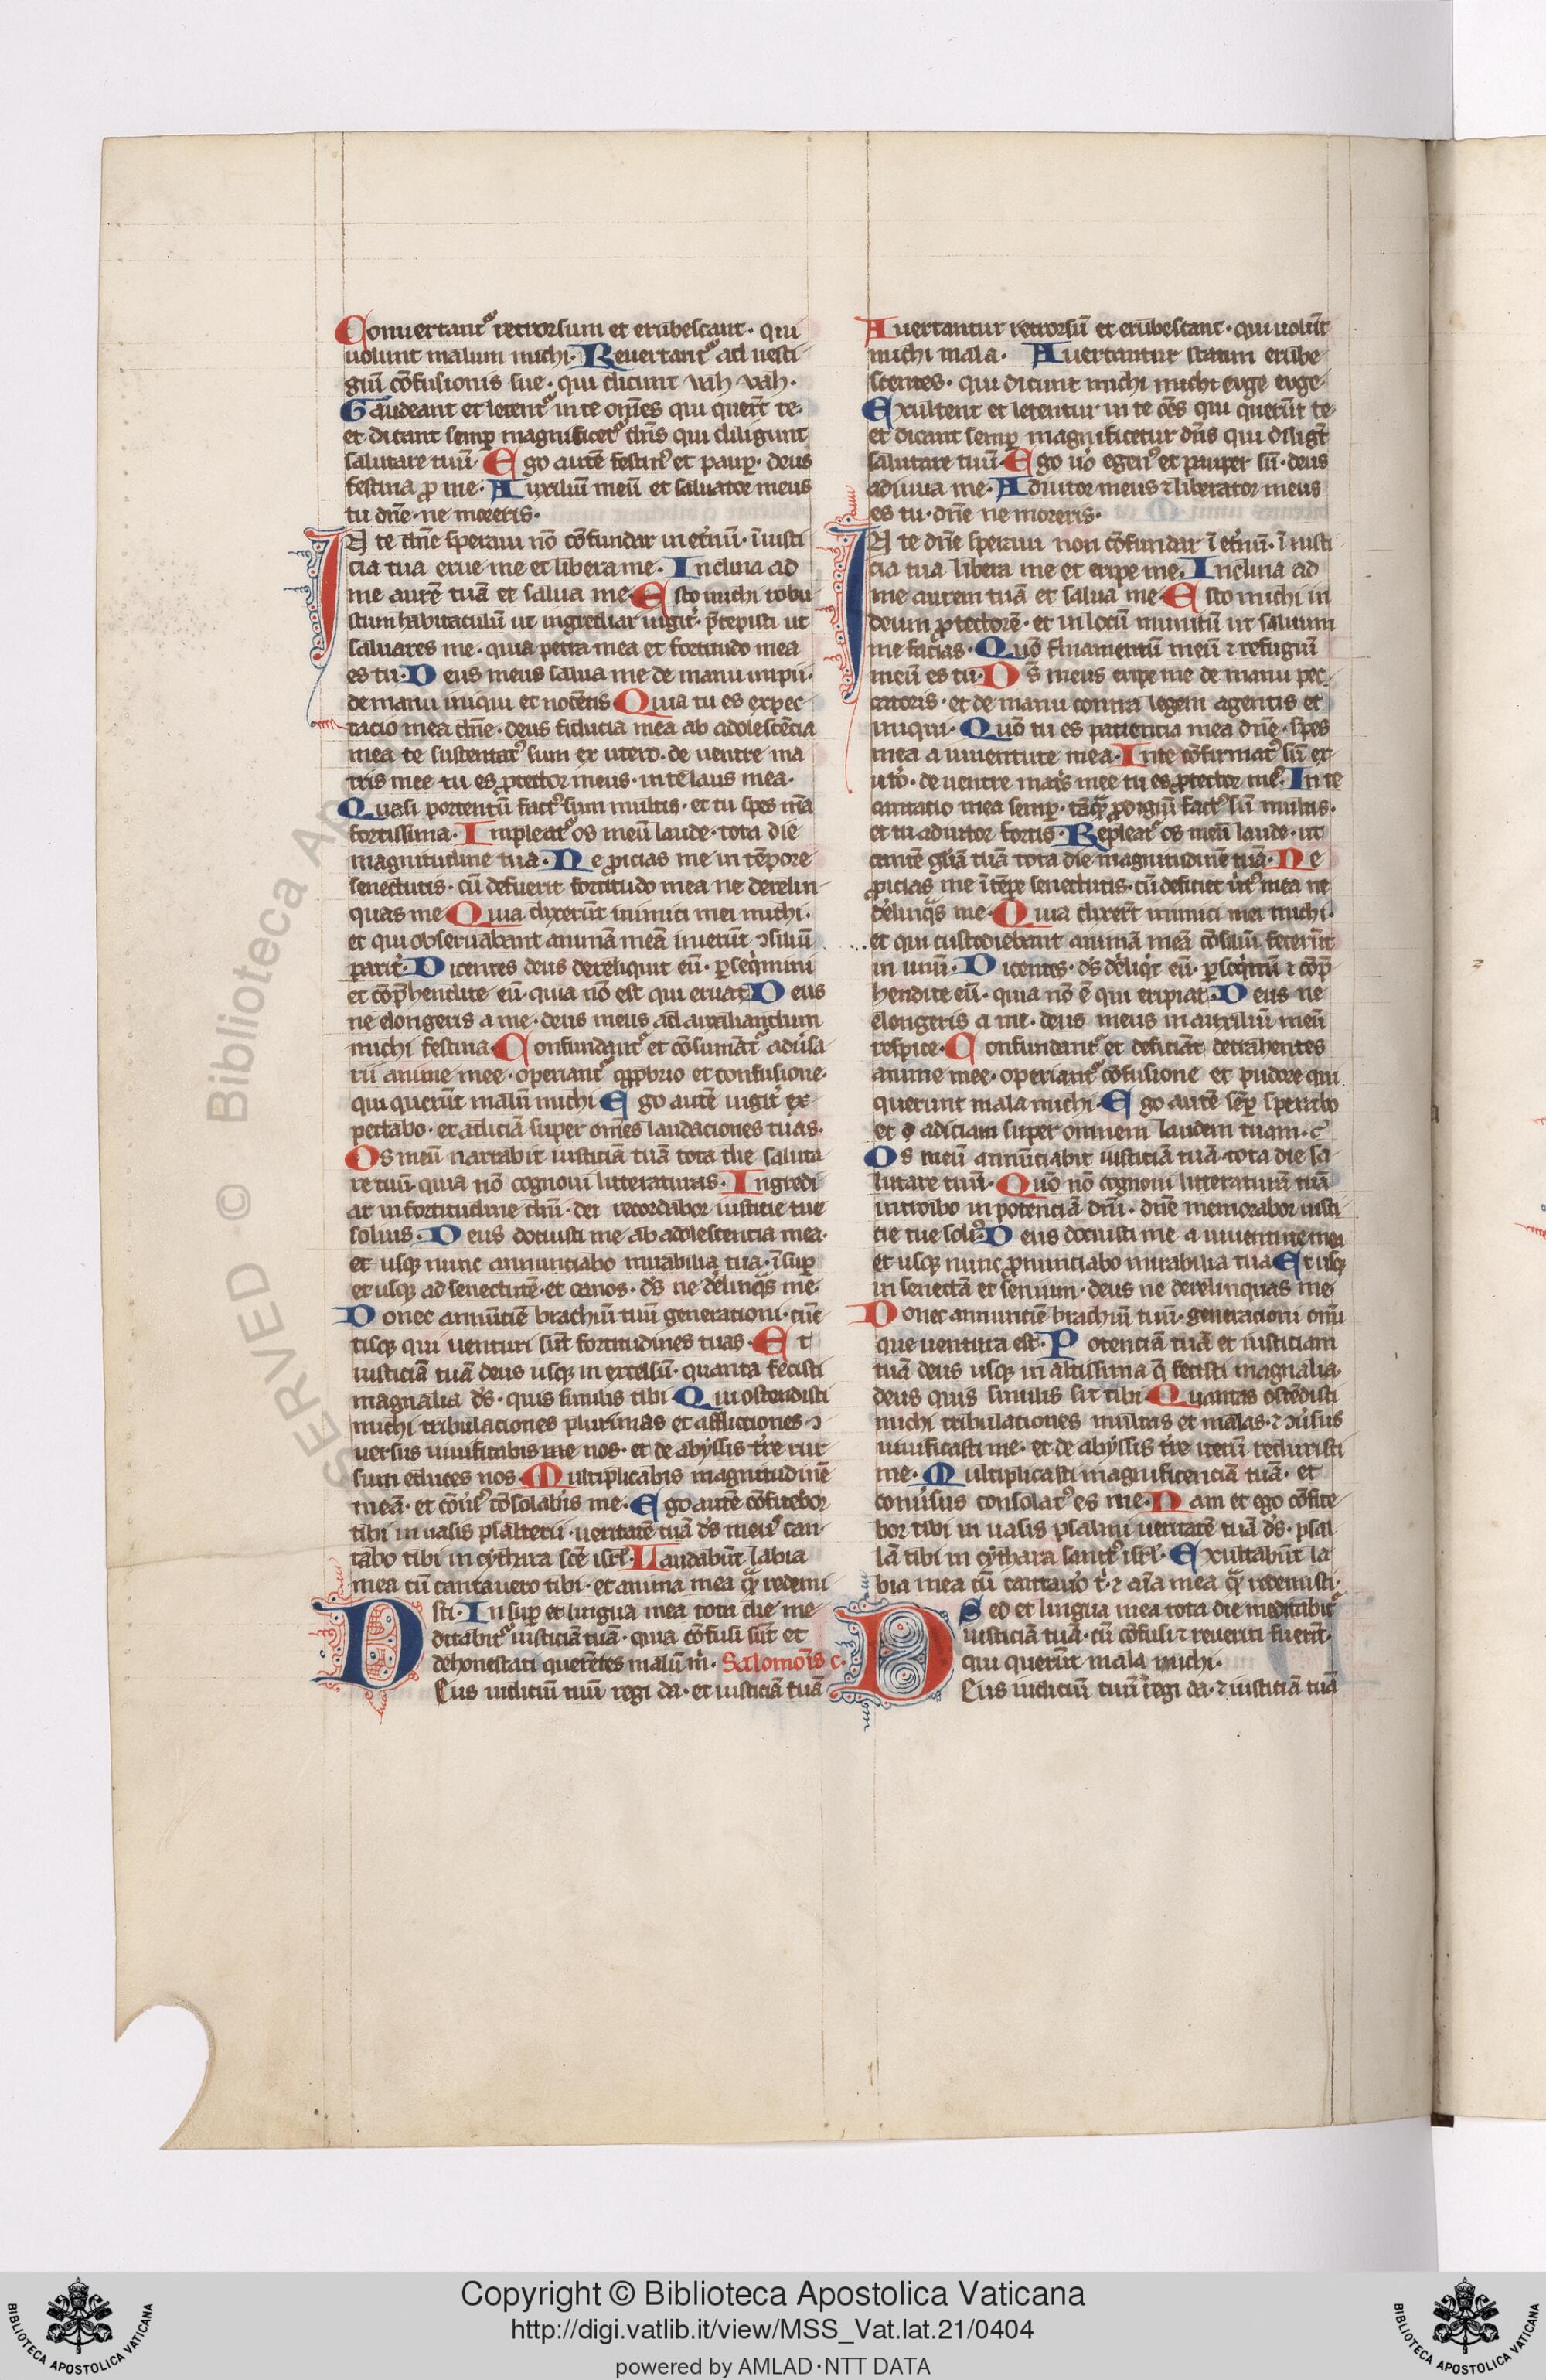 Conuertant᷒ retrorsum et erubescant · qui
uolunt malum michi · Reuertant᷒ ad uesti
giū cōfusionis sue · qui dicunt vah vah ·
Gaudeant et letent᷒ in te om̄es qui querūt te ·
et dicant semꝑ magnificet᷒ dn̄s qui diligunt
salutare tuū · Ego autē festinꝰ et pauꝑ · deus
festina ꝓ me · Auxiliū meū et saluator meus
tu dn̄e · ne moreris ·
IN te dn̄e speraui nō cōfundar in et̓nū · ī iusti
cia tua erue me et libera me · Inclina ad
me aurē tuā et salua me · Esto michi robu
stum habitaculū ut ingrediar iugit̓ · p̄cepisti ut
saluares me · quia petra mea et fortitudo mea
es tu · Deus meus salua me de manu impii ·
de manu iniqui et nocētis Quia tu es expec
tacio mea dn̄e · deus fiducia mea ab adolescēcia
mea te sustentatꝰ sum ex utero · de uentre ma
tris mee tu es ꝓtector meus · in te laus mea ·
Quasi portentū factꝰ sum multis · et tu spes m̄a
fortissima · Impleat᷒ os meū laude · tota die
magnitudine tua · Ne ꝓicias me in tēpore
senectutis · cū defuerit fortitudo mea ne derelin
quas me Quia dixerūt inimici mei michi ·
et qui obseruabant animā meā inierūt ꝯsiliū
parit̓ · Dicentes deus dereliquit eū · ꝑseqͥmini
et cōp̄hendite eū · quia nō est qui eruat Deus
ne elongeris a me · deus meus ad auxiliandum
michi festina · Confundant᷒ et cōsumāt᷒ adu̓sa
rii anime mee · operiant᷒ opꝓbrio et confusione
qui querūt malū michi Ego autē iugit̓ ex
pectabo · et adiciā super om̄es laudaciones tuas ·
Os meū narrabit iusticiā tuā tota die saluta
re tuū · quia nō cognoui litteraturas · Ingredi
ar in fortitudine dn̄i · dei recordabor iusticie tue
solius · Deus docuisti me ab adolescentia mea ·
et usqꝫ nunc annunciabo mirabilia tua · īsuꝑ
et usqꝫ ad senectutē · et canos · ds̄ ne de̓linqͣs me ·
Donec annūciē brachiū tuū generationi · cūc
tisqꝫ qui uenturi sūt fortitudines tuas · Et
iusticiā tuā deus usqꝫ in excelsū · quanta fecisti
magnalia ds̄ · quis similis tibi Qui ostendisti
michi tribulaciones plurimas et afflictiones · ꝯ
uersus uiuificabis me nos · et de abyssis t̓re rur
sum educes nos · Multiplicabis magnitudinē
meā · et cōu̓sꝰ cōsolabis me · Ego autē cōfitebor
tibi in uasis psalterii · ueritatē tuā ds̄ meꝰ can
tabo tibi in cythara scē isrl̓ · Laudabūt labia
mea cū cantauero tibi · et anima mea qͣ̄ redemi
sti · Insuꝑ et lingua mea tota die me
ditabit᷒ iusticiā tuā · quia cōfusi sūt et
dehonestati querētes malū m̓ · Salomōis c ·
Deus iudiciū tuū regi da · et iusticiā tuā
Auertantur retrorsū et erubescant · qui uolūt
michi mala · Auertantur statim erube
scentes · qui dicunt michi michi euge euge ·
Exultent et letentur in te oēs qui querūt te
et dicant semꝑ magnificetur dn̄s qui diligūt
salutare tuū · Ego u̓o egenꝰ et pauper sū · deus
adiuua me · Adiutor meus ⁊ liberator meus
es tu · dn̄e ne moreris ·
IN te dn̄e speraui non cōfundar ī et̓nū · ī iusti
cia tua libera me et eripe me · Inclina ad
me aurem tuā et salua me · Esto michi in
deum ꝓtectorē · et in locū munitū ut saluum
me facias · Quō firmamentū meū ⁊ refugiū
meū es tu · Ds̄ meus eripe me de manu pec
catoris · et de manu contra legem agentis et
iniqui · Quō tu es patientia mea dn̄e · spes
mea a iuuentute mea · In te cōfirmatꝰ sū ex
ut̓o · de uentre mat̓s mee tu es ꝓtector mꝰ · In te
cantatio mea semꝑ · tāqͣ̄ ꝓdigiū factꝰ sū multis ·
et tu adiutor fortis · Repleat᷒ os meū laude · ut
cantē gl̄iā tuā tota die magnitudinē tuā · Ne
ꝓicias me ī tēpe senectutis · cū deficiet u̓tꝰ mea ne
de̓linqͣs me · Quia dixerūt inimici mei michi ·
et qui custodiebant animā meā cōsiliū fecerūt
in unū · Dicentes · ds̄ de̓liqͥt eū · ꝑseqͥmī ⁊ cōp̄
hendite eū · quia nō ē qui eripiat · Deus ne
elongeris a me · deus meus in auxiliū meū
respice · Confundant᷒ et deficiāt detrahentes
anime mee · operiant᷒ cōfusione et pudore qui
querunt mala michi · Ego autē semꝑ sperabo
et adiciam super omnem laudem tuam ·
Os meū annūciabit iusticiā tuā · tota die sa
lutare tuū · Quō nō cognoui litteraturā tuā
introibo in potenciā dn̄i · dn̄e memorabor iusti
cie tue soliꝰ Deus docuisti me a iuuentute mea
et usqꝫ nunc ꝓnunciabo mirabilia tua Et usqꝫ
in senectā et senium · deus ne derelinquas me
Donec annunciē brachiū tuū · generacioni omī
que uentura est · Potenciā tuā et iusticiam
tuā deus usqꝫ in altissima q̄ fecisti magnalia
deus quis similis sit tibi · Quantas ostēdisti
michi tribulationes multas et malas · ⁊ ꝯu̓sus
uiuificasti me · et de abyssis t̓re iterū reduxisti
me · Multiplicasti magnificenciā tuā · et
conu̓sus consolatꝰ es me · Nam et ego cōfite
bor tibi in uasis psalmi ueritatē tuā ds̄ · psal
lā tibi in cythara sanctꝰ isrl̓ · Exultabūt la
bia mea cū cantau̓o t̓ · ⁊ aīa mea qͣ̄ redemisti ·
Sed et lingua mea tota die meditabit᷒
iusticiā tuā · cū cōfusi ⁊ reueriti fuerīt ·
qui querūt mala michi ·
Deus iudiciū tuū regi da · ⁊ iusticiā tuā
SERVED © Biblioteca Ap
Copyright © Biblioteca Apostolica Vaticana
http://digi.vatlib.it/view/MSS_Vat.lat.21/0404
powered by AMLAD·NTT DATA
BIBLIOTECA APOSTOLICA VATICANA
BIBLIOTECA APOSTOLICA VATICANA